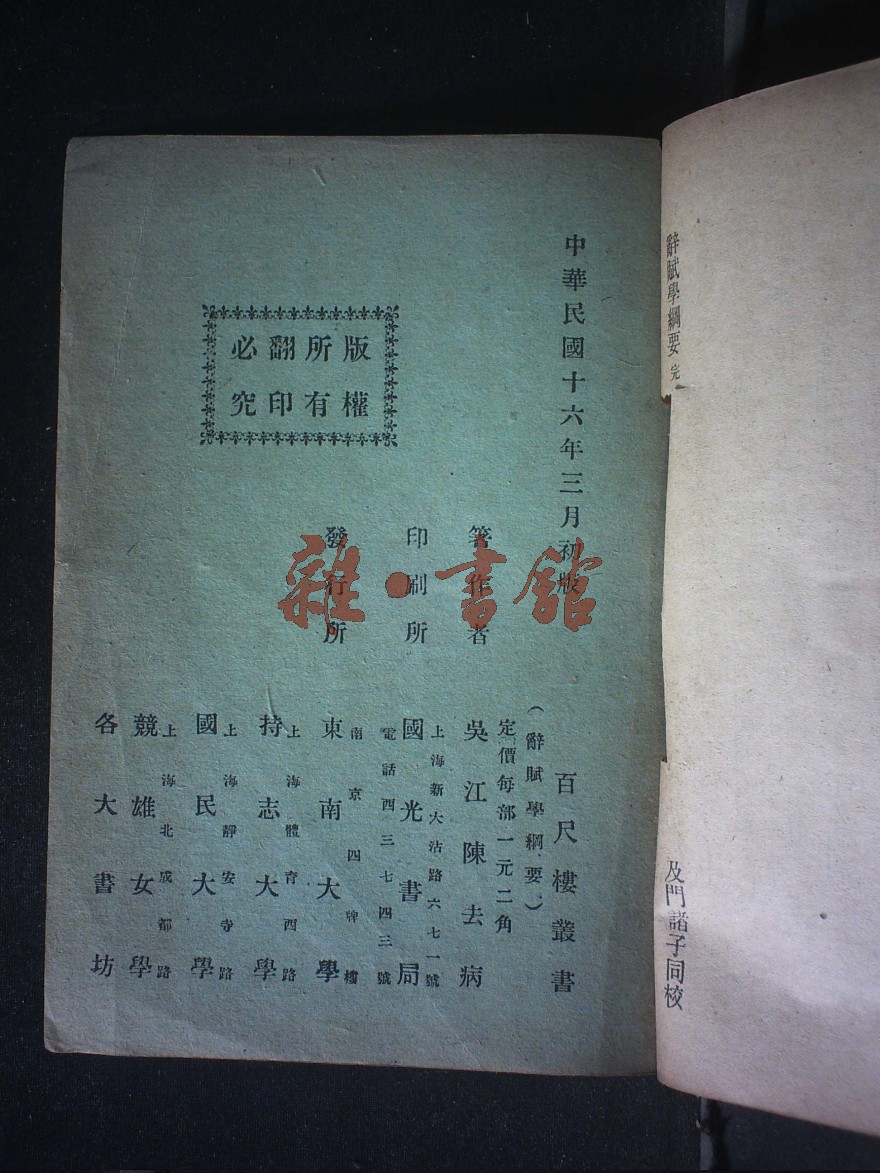 辭賦學綱要 完
及門諸子同校
中華民國十六年三月初版
版權
所有
翻印
必究
百尺樓叢書
（辭賦學綱要）
定價每部一元二角
箸作者
吳江陳去病
印刷所
上海新大沽路六七一號
國光書局
電話四三七四三號
發行所
南京四牌樓
東南大學
上海體育西路
持志大學
上海靜安寺路
國民大學
上海北成都路
競雄女學
各大書坊
雜·書館